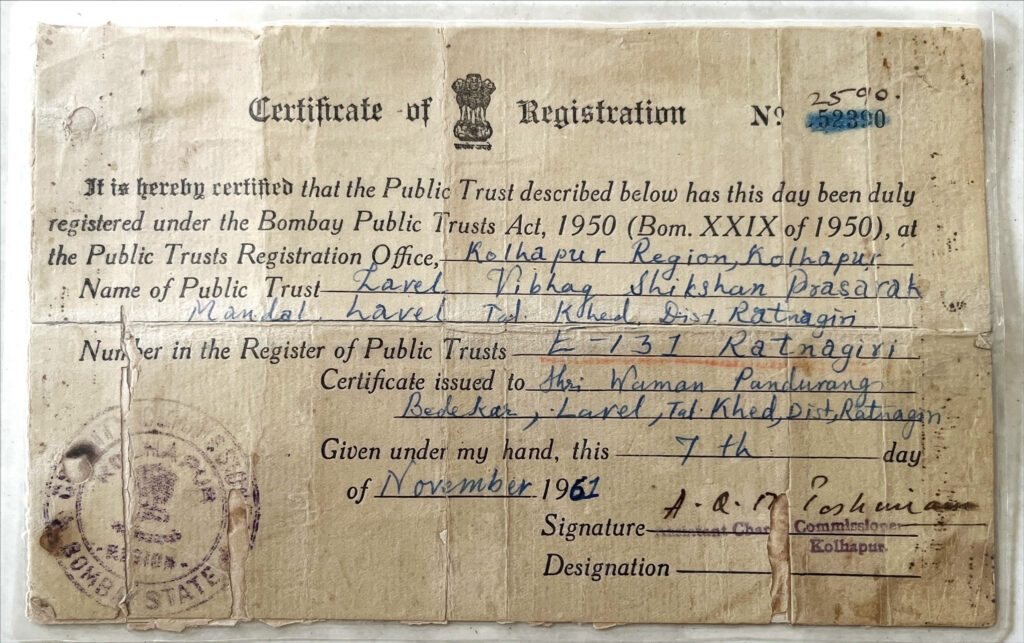 2590.
Certificate of Registration Nº 52390
सत्यमेव जयते
It is hereby certified that the Public Trust described below has this day been duly
registered under the Bombay Public Trusts Act, 1950 (Bom. XXIX of 1950), at
the Public Trusts Registration Office, Kolhapur Region, Kolhapur
Name of Public Trust Lavel Vibhag Shikshan Prasarak
Mandal Lavel Tal Khed Dist. Ratnagiri
Number in the Register of Public Trusts E-131 Ratnagiri
Certificate issued to Shri Waman Pandurang
Bedekar, Lavel, Tal. Khed, Dist, Ratnagiri
Given under my hand, this 7th day
of November 1961
Signature
Assistant Charity Commissioner
Kolhapur.
Designation
KOLHAPUR
REGION
BOMBAY STATE